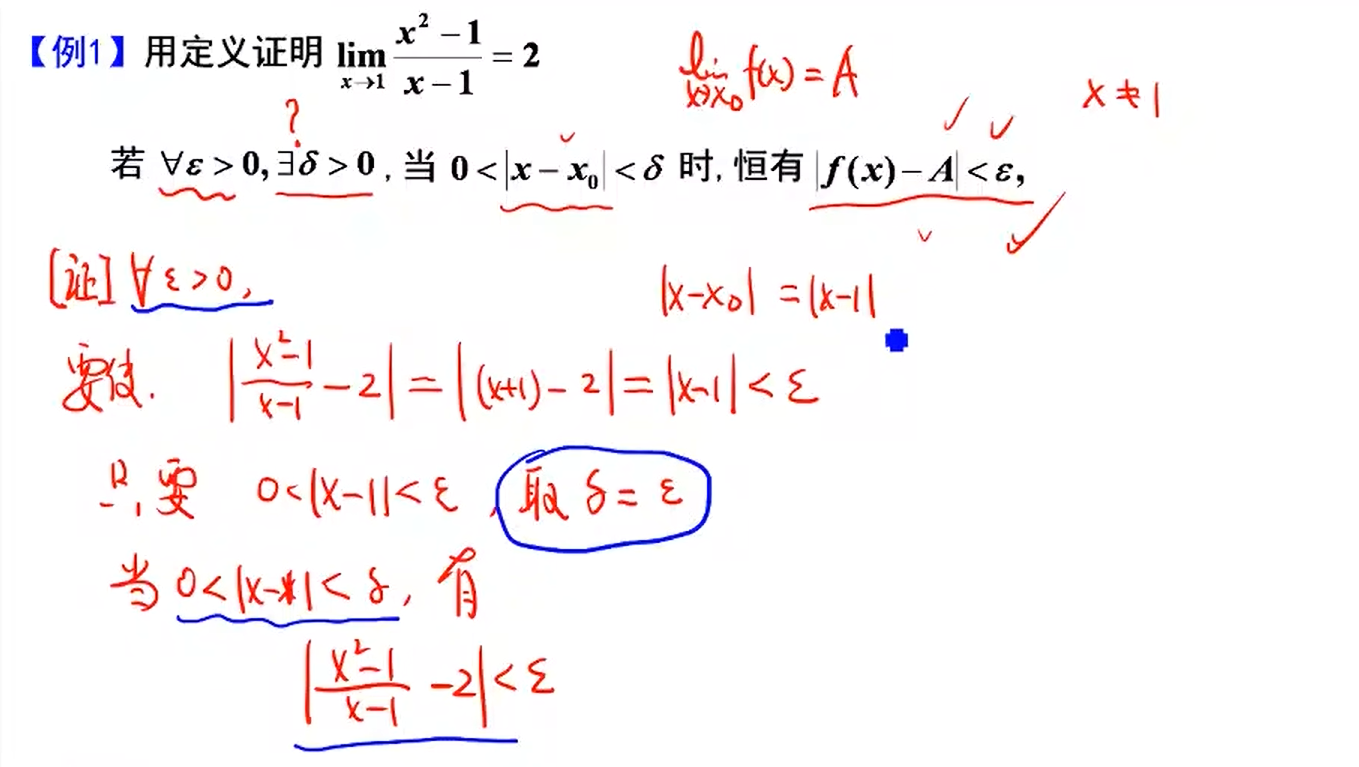 【例1】用定义证明 lim x→1 (x² − 1)/(x − 1) = 2
lim x→x₀ f(x) = A
x ≠ 1
?
若 ∀ε > 0, ∃δ > 0, 当 0 < |x − x₀| < δ 时, 恒有 |f(x) − A| < ε,
[证] ∀ ε > 0,
|x − x₀| = |x − 1|
要使. |(x² − 1)/(x − 1) − 2| = |(x+1) − 2| = |x − 1| < ε
只要 0 < |x − 1| < ε , 取 δ = ε
当 0 < |x − 1| < δ , 有
|(x² − 1)/(x − 1) − 2| < ε